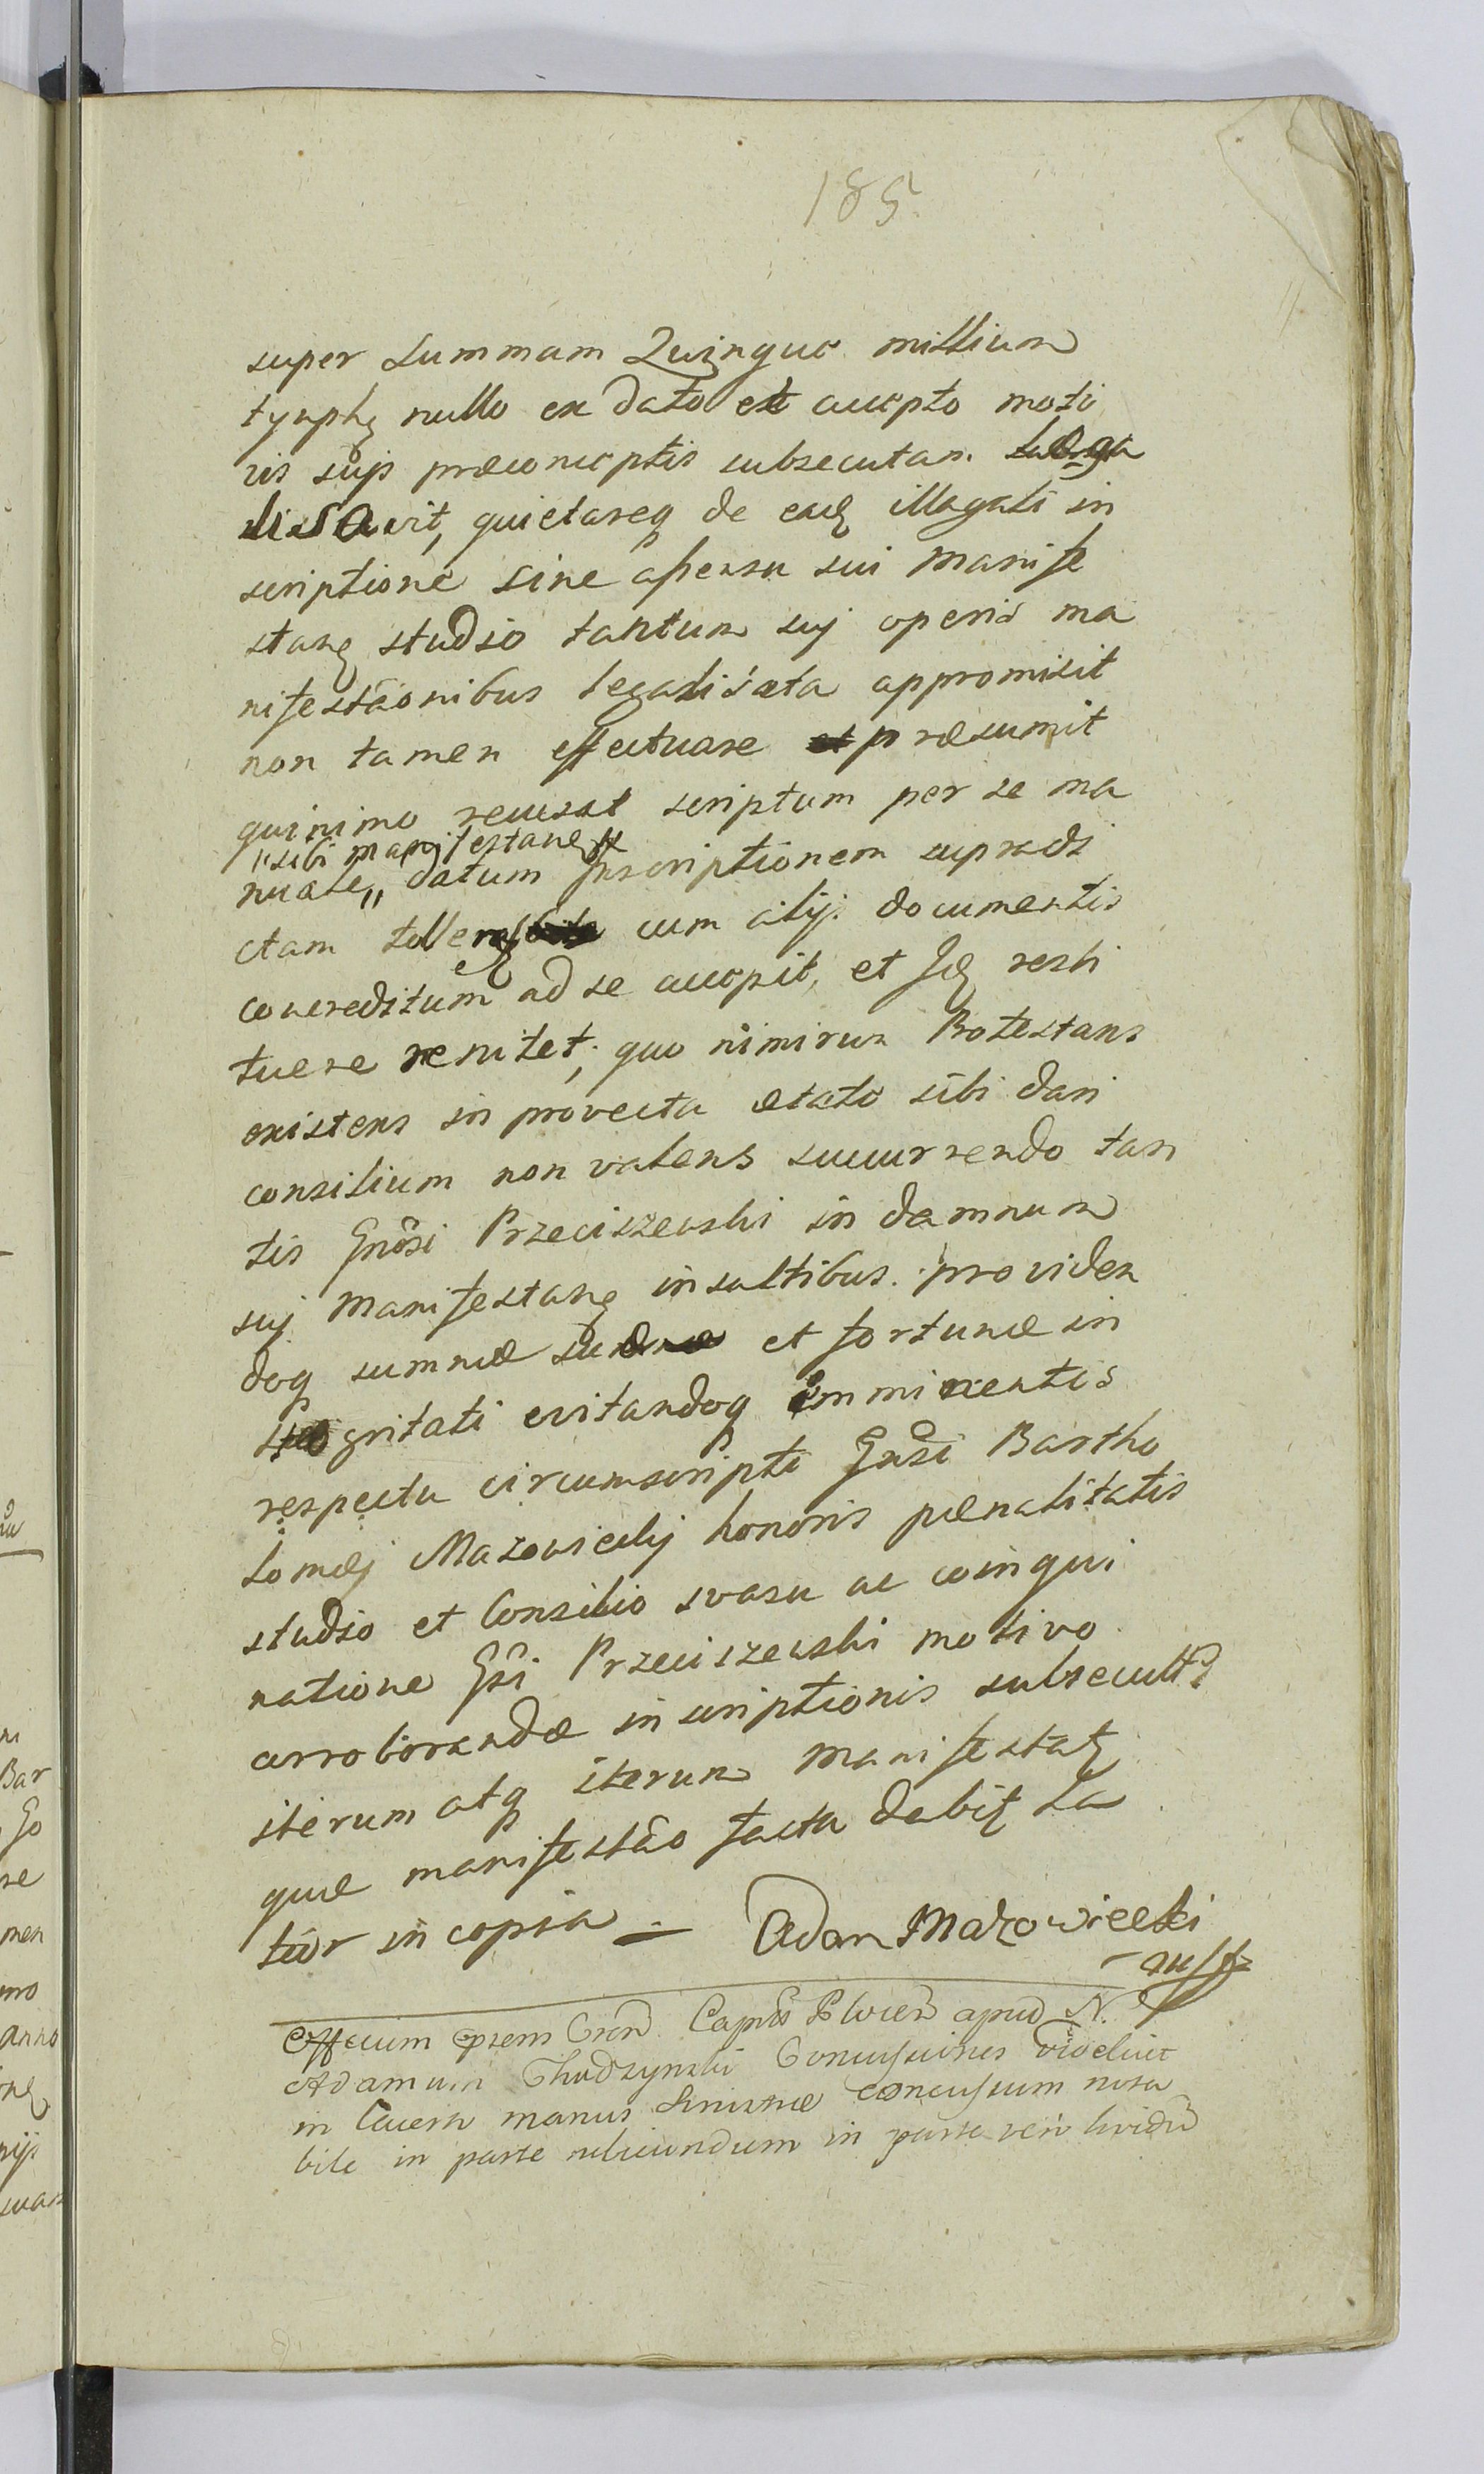 185
super summam Quinque millium
tynph nullo ex dato et accepto moti
vis sujs præconceptis subsecutam lega
lisavit, quietareq de eade illagali in
scriptione sine assensu sui Manife
stane studio tantum suj operis ma
nifestãonibus legalisata appromisit
non tamen effectuare præsumit
quinimo recusat scriptum per se ma
"sibi manifestane
nuale,, datum Inscriptionem supradi
ctam tollere cum alijs documentis
concreditum ad se accepit, et Ide resti
tuere renitet; quo nimirum Protestans
existens in provecta ætate sibi dari
consilium non valens succurrendo tan
tis Gnosi Przeciszewski in damnum
suj Manifestane insultibus. providen
doq summæ suæ et fortunæ in
tegritati evitandoq imminentis
respectu circumscripti Gnsi Bartho
lomæj Mazowiecky honoris pænalitatis
studio et Consilio svasu ac coinqui
natione Gsi Przeciszewski motivo
corroborandæ inscriptionis subsecutæ
iterum atq iterum Manifestat
quæ manifestão facta dabit La
tior in copia — Adam Mazowiecki
mpp
Officium præsens Cren Capłe Plocen apud N.
Adamum Chudzynski Concussiones videlicet
in Cavern manus Sinistræ concussum nota
bile in parte rubicundum in parte vero lividu
Bar
Go
re
men
mo
anno
nijs
suam